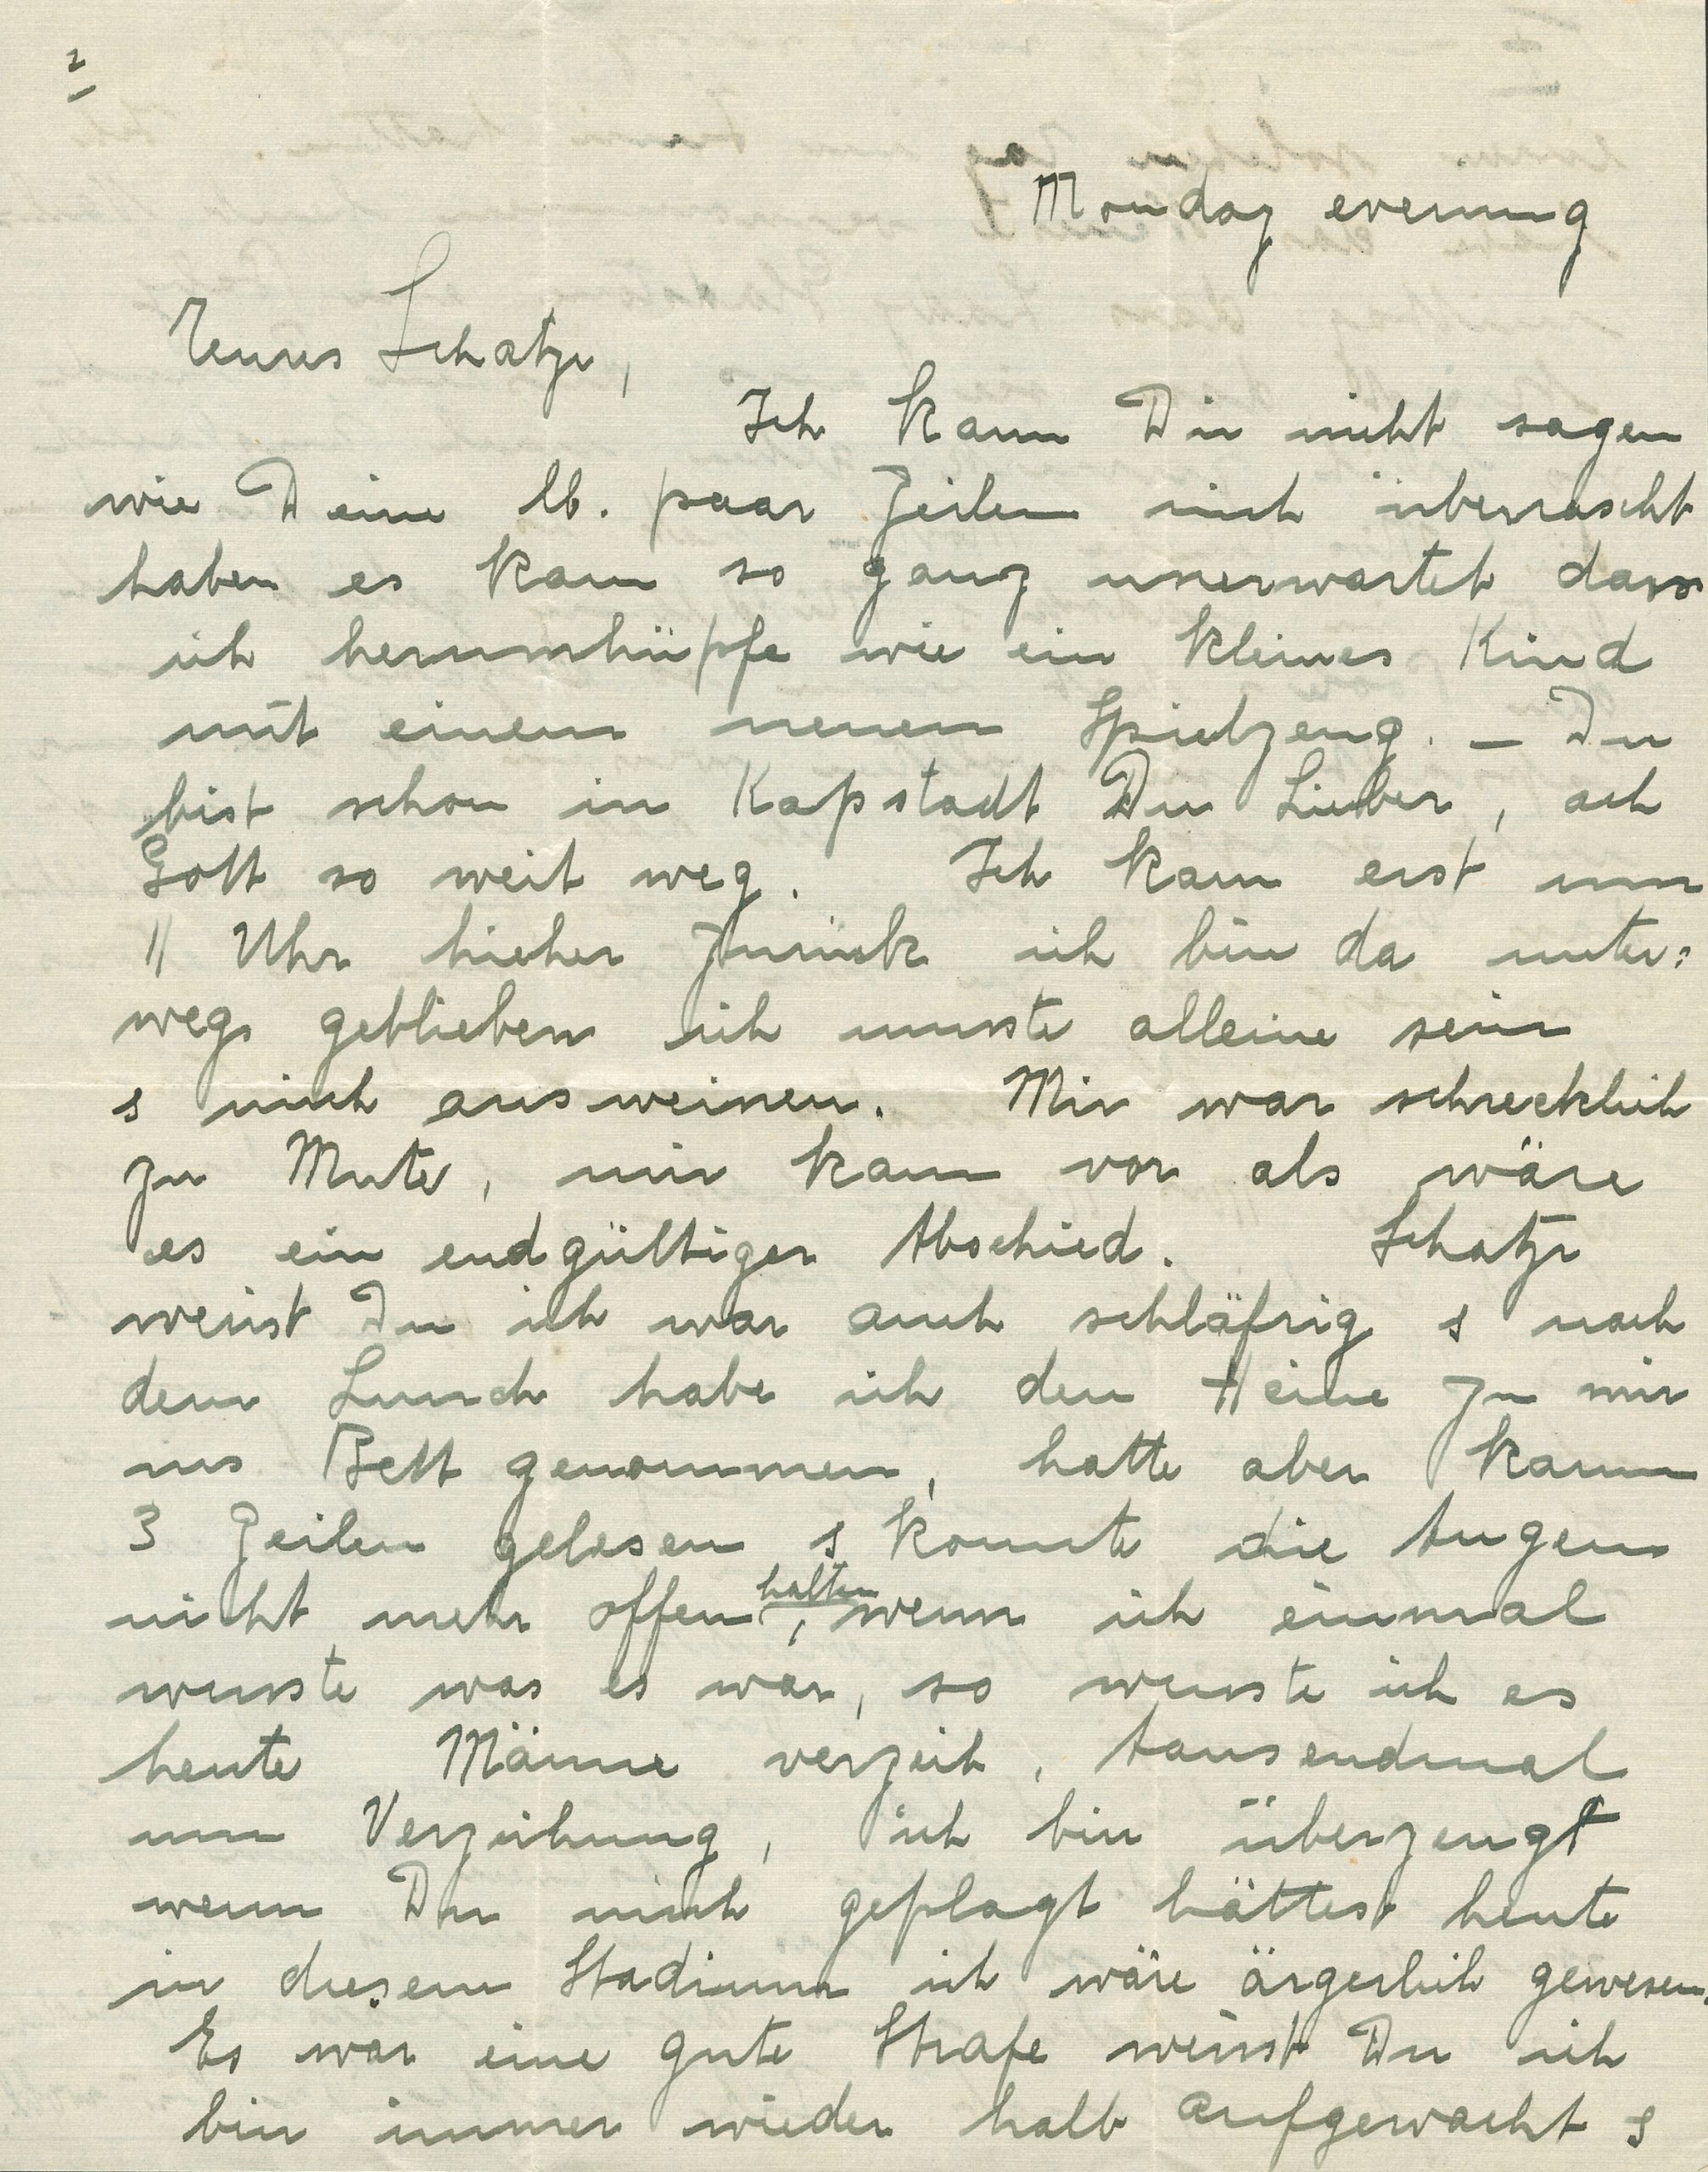 2
Monday evening
Teures Schatzi,
Ich kann Dir nicht sagen
wie Deine lb. paar Zeilen mich überrascht
haben es kam so ganz unerwartet dass
ich herumhüpfe wie ein kleines Kind
mit einem neuen Spielzeug. – Du
bist schon in Kapstadt Du Lieber, ach
Gott so weit weg. Ich kam erst um
11 Uhr hieher zurück ich bin da unter:
wegs geblieben ich musste alleine sein
& mich ausweinen. Mir war schrecklich
zu Mute, mir kam vor als wäre
es ein endgültiger Abschied. Schatzi
weisst Du ich war auch schläfrig & nach
dem Lunch habe ich den Heine zu mir
ins Bett genommen, hatte aber kaum
3 Zeilen gelesen & konnte die Augen
nicht mehr offen halten, wenn ich einmal
wusste was es war, so wusste ich es
heute Männe verzeih, tausendmal
um Verzeihung, ich bin überzeugt
wenn Du mich geplagt hättest heute
in diesem Stadium ich wäre ärgerlich gewesen.
Es war eine gute Strafe weisst Du ich
bin immer wieder halb aufgewacht &